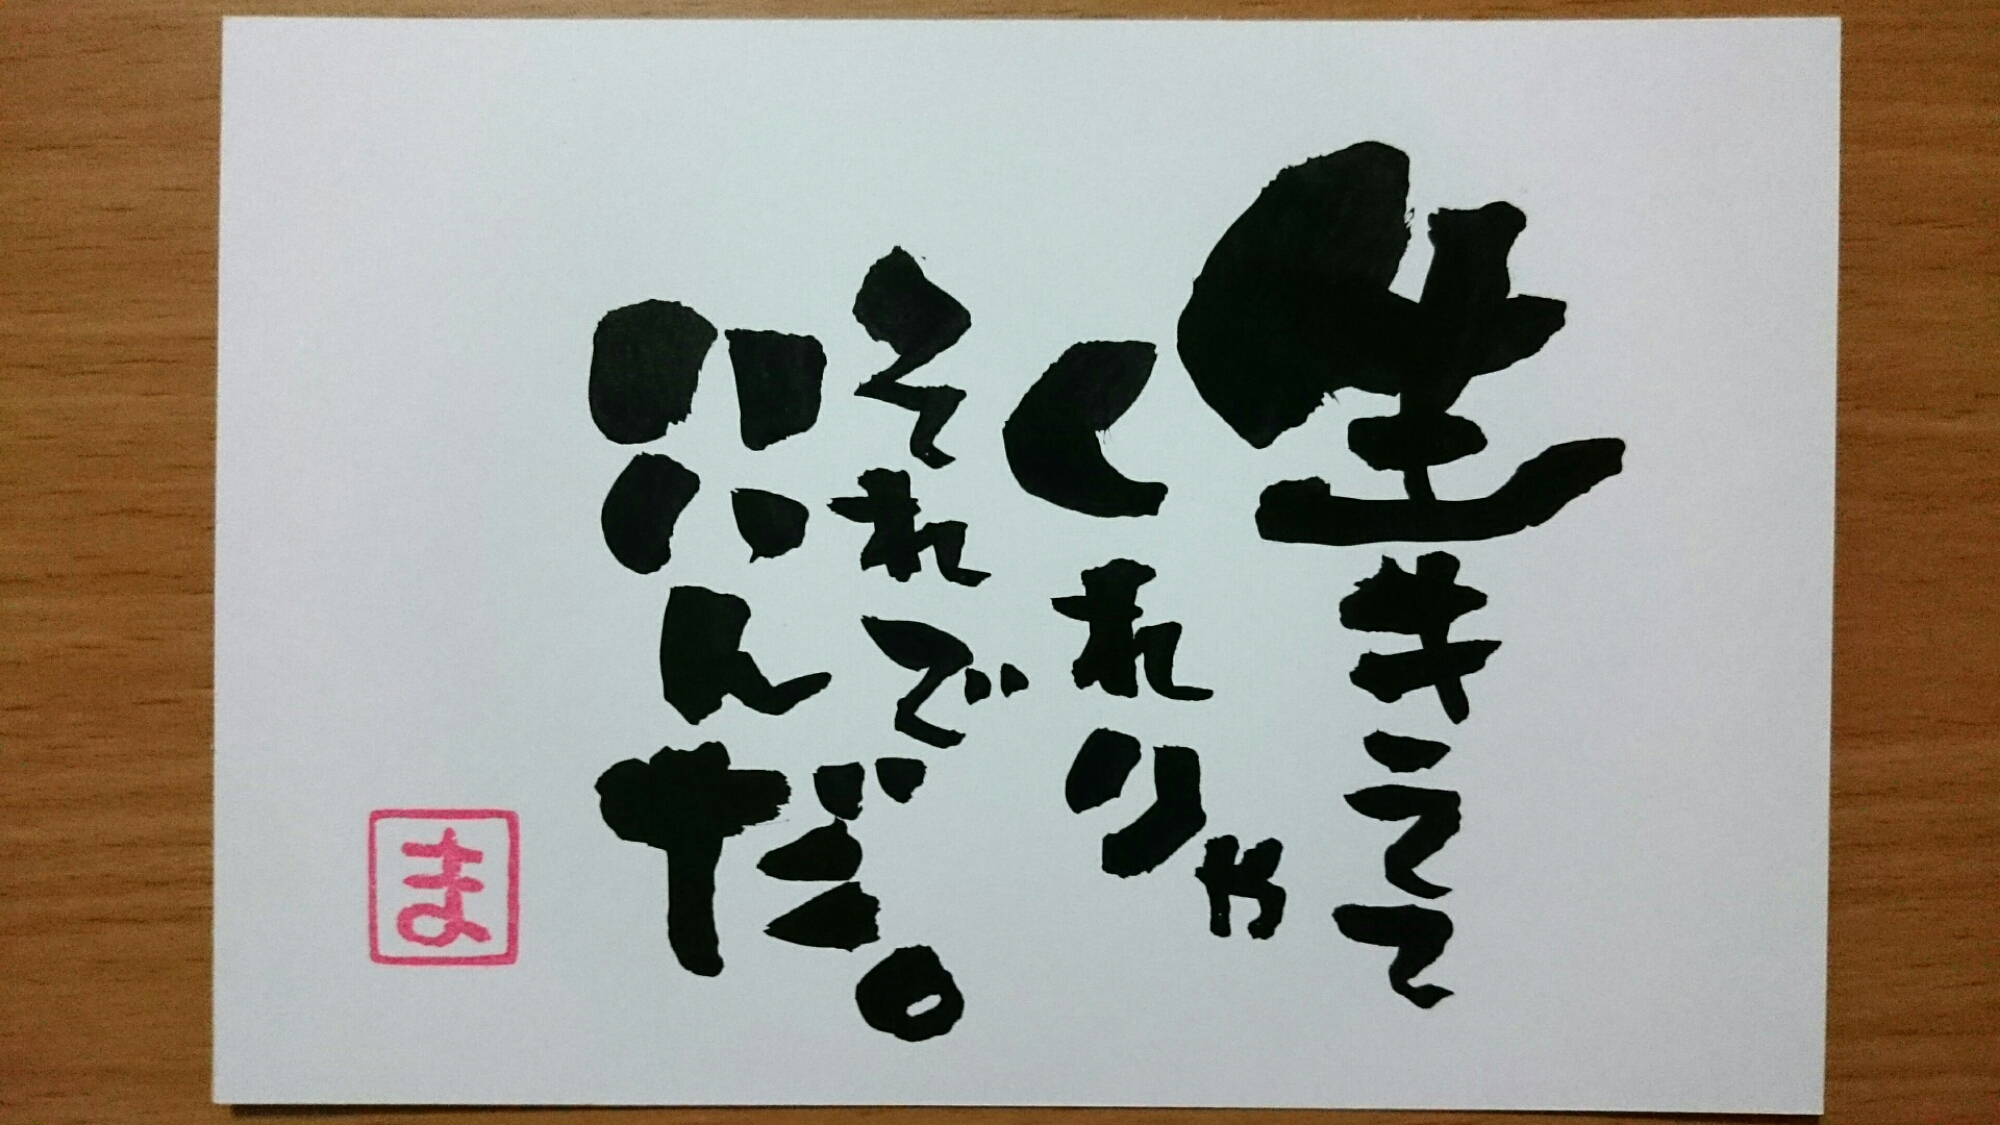 生きてて
くれりゃ
それで
いいんだ。
ま